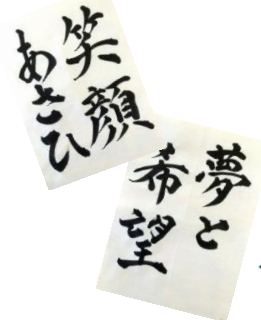 笑顔
あさひ
夢と
希望